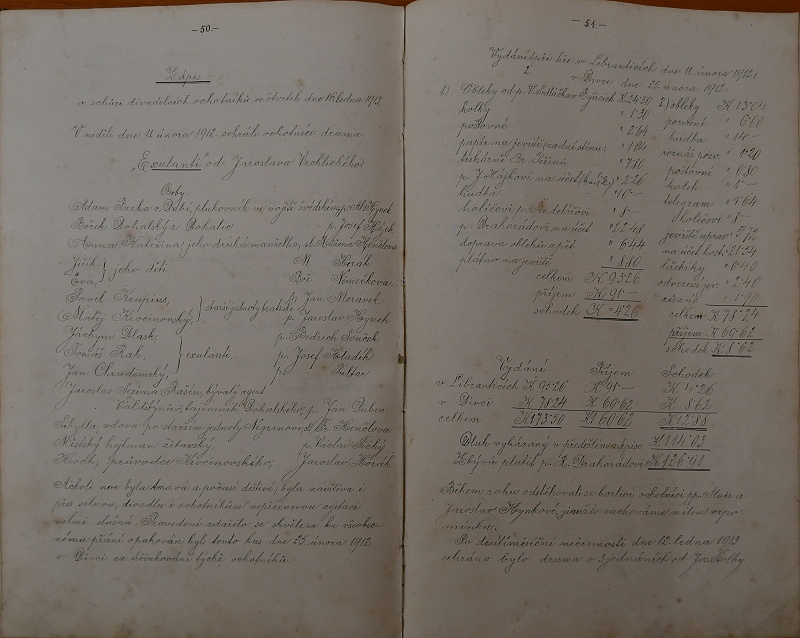 - 50. -
Zápis
o schůzi divadelních ochotníků ve čtvrtek dne 16. ledna 1913.
V neděli dne 11 února 1912 sehráli ochotníci drama
„Exulanti" od Jaroslava Vrchlického
Osoby.
Adam Berka z Dubé, plukovník ve vojště švédském, p. Al. Hynek
Bořek Dohalský z Dohalic p. Josef Hájek
Anna Kateřina jeho druhá manželka, sl. Růžena Henclova
Jiřík, } jeho děti M. Horák
Eva, Bož. Němečkova
Pavel Krupius, } starší jednoty bratrské p. Jan Morávek
Matěj Krocinovský, p. Jaroslav Hynek
Jáchym Vlask, } exulanti, p. Bedřich Souček
Tomáš Rak, p. Josef Hladík
Jan Chrudimský, p. Pultar
Jaroslav Sezima Rašín, bývalý agent
Valdštýnův, tajemník Dohalského p. Jan Duben
Sibylla, vdova po starším jednoty Nigrinovi, sl. Fr. Henclova
Městský hejtman žitavský, p. Václav
Koch, průvodce Krocinovského, Jaroslav Horák
Ačkoli noc byla tmavá a počasí deštivé, byla návštěva i
přes silnou, divadlu i ochotníkům nepříznivou agitaci
velmi slušná. Provedení zdařilo se skvěle a ku všeobec-
nému přání opakován byl tento kus dne 25. února 1912
v Divci za účinkování týchž ochotníků.
- 51. -
Vydání při hře v Librantících dne 11. února 1912,
v Divci dne 25. února 1912.
1) Obleky od p. V. Sedláčka v Býřicích K 24·50
kolky " 1·30
poštovné " 2·64
papír na jeviště (zadní stěna) " 1·04
tiskárně Br. " 7·80
p. J. Hájkovi na účet " 2·26
hudbě " 10·-
holičovi p. " 8·-
p. Drahorádovi na účet " 22·48
doprava obleků zpět " 6·44
plátno na jeviště " 8·80
celkem K 95·26
příjem K 91·-
schodek K = 4·26
2) obleky K 13·04
porvint " 0·60
hudba " 14·-
roznáš. pozv. " 1·20
poštovné " 0·80
kolek " 1·-
telegram " 1·64
holičovi " 8·-
jeviště uprav. " 5·72
na účet host. " 21·34
hřebíky " 0·40
odvezení jev. " 2·40
celkem K 78·24
příjem K 69·62
schodek K 8·62
Vydání Příjem Schodek
v Librantících K 95·26 K 91·- K 4·26
v Divci K 78·24 K 69·62 K 8·62
celkem K 173·50 K 160·62 K 12·88
Dluh vykázaný v předešlém zápise K 114·03
Zbývá platit p. R. Drahorádovi K 126·91
Během roku odstěhovali se horliví ochotníci pp. Alois a
Jaroslav Hynkové, jimž to zachováme milou vzpo-
mínku.
Po desítiměsíční nečinnosti dne 12. ledna 1913
sehráno bylo drama o 3 jednáních od Jos. Štolby